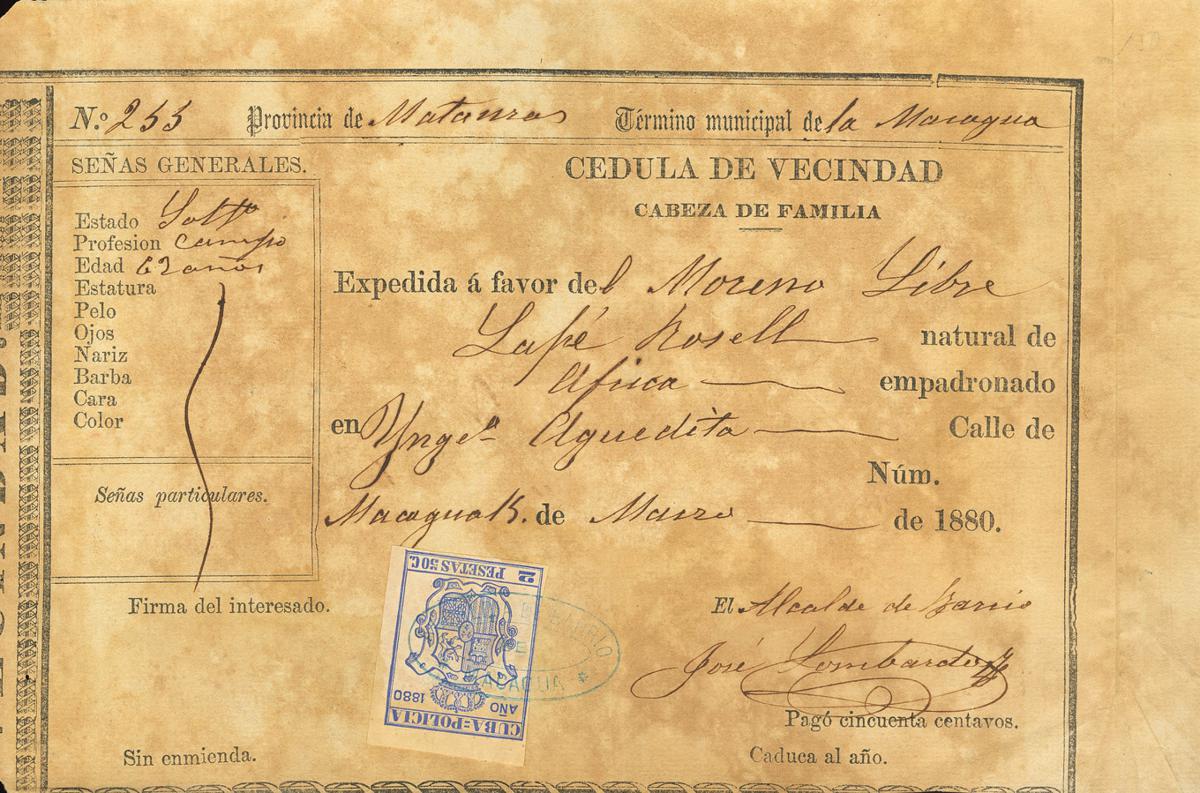 N.º 255 Provincia de Matanzas Término municipal de la Macagua
SEÑAS GENERALES.
Estado Soltº
Profesion campo
Edad 62 años
Estatura
Pelo
Ojos
Nariz
Barba
Cara
Color
Señas particulares.
Firma del interesado.
Sin enmienda.
CEDULA DE VECINDAD
CABEZA DE FAMILIA
Expedida á favor del Moreno Libre
Rosell natural de
Africa empadronado
en Yngº Aguedita Calle de
Núm.
Macagua 15. de Marzo de 1880.
2 PESETAS 50 C.
AÑO 1880
CUBA=POLICIA
BARRIO
DE
MACAGUA
El Alcalde de Barrio
José Lombardo
Pagó cincuenta centavos.
Caduca al año.